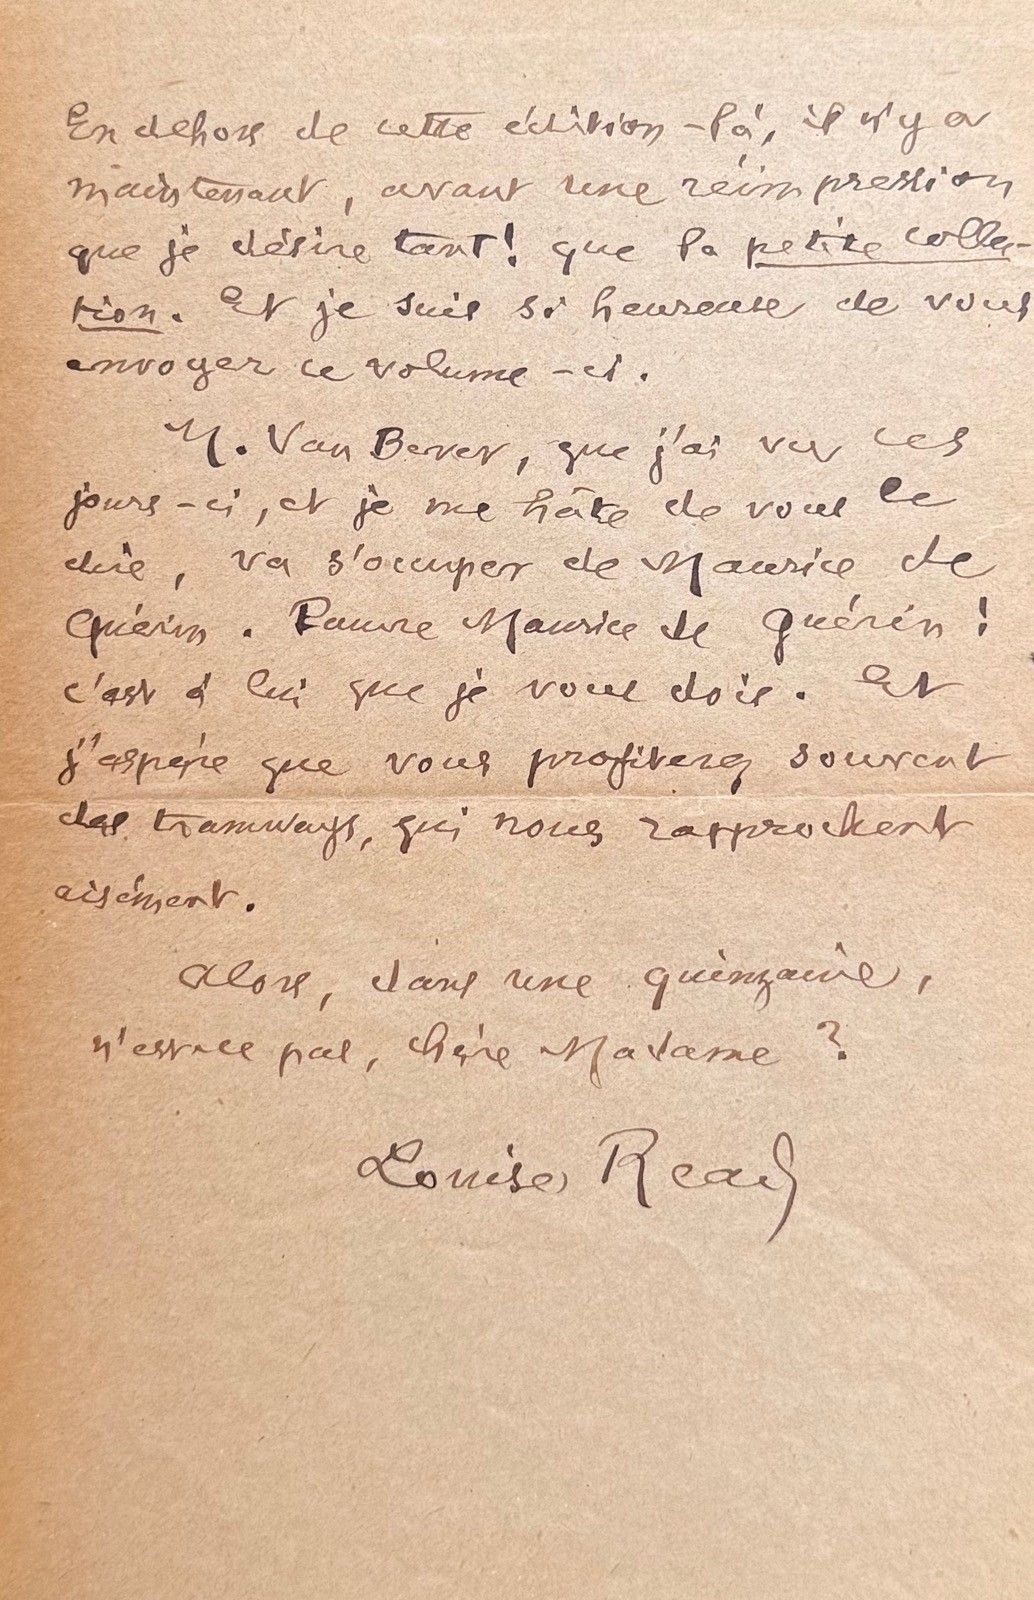 En dehors de cette édition-là, il n'y a
maintenant, avant une réimpression
que je désire tant! que la petite collec-
tion. Et je suis si heureuse de vous
envoyer ce volume-ci.
M. Van Bever, que j'ai vu ces
jours-ci, et je me hâte de vous le
dire, va s'occuper de Maurice de
Guérin. Pauvre Maurice de Guérin!
c'est à lui que je vous dois. Et
j'espère que vous profiterez souvent
des tramways, qui nous rapprochent
aisément.
Alors, dans une quinzaine,
n'est-ce pas, chère Madame?
Louise Read